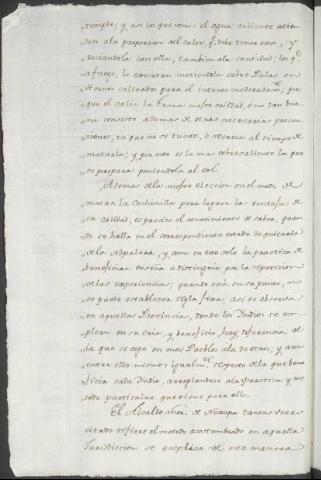 "temple; y asi los que usan el agua caliente atien
"den ala proporcion del calor, q.e debe tener esta, y
"rociandola con ella, tambien ala cantidad; los q.e
"afuego, lo executan metiendola sobre Palas en
"Hornos caldeados para el intento moderadam.te pa
"que el calor la
"na consiste ademas de otras necesarias precau
"ciones, en que no se tueste, o recueza al tiempo de
"matarla; y por esto es la mas sobresaliente la que
"se prepara poniendola al sol
"Ademas de la mejor eleccion en el modo de
"matar la Cochinilla para lograr la ventaja de
"su calidad, es preciso el conocimiento de saber, quan
"do se halla en el correspondiente estado de quitarla
"de la Nopalera, y como en esto solo la practica de
"beneficiar enseña a distinguir por la repeticion
"de las experiencias; quando está en su punto, no
"se puede establecer regla fixa; asi se observa
"en aquellas Provincias, donde los Yndios se em
"plean en su cria, y beneficio, hay diferencia de
"la que se coge en unos Pueblos ala de otros; y aun
"entre ellos mismos igualm.te respecto de la que bene
"ficia cada Yndio, arreglandose ala practica y me
"todo particular que tiene para ello.
"El Alcalde mor. de Nexapa tantas veces
"citado refiere el metodo acostumbrado en aquella
"Jurisdiccion se explica de esta manera